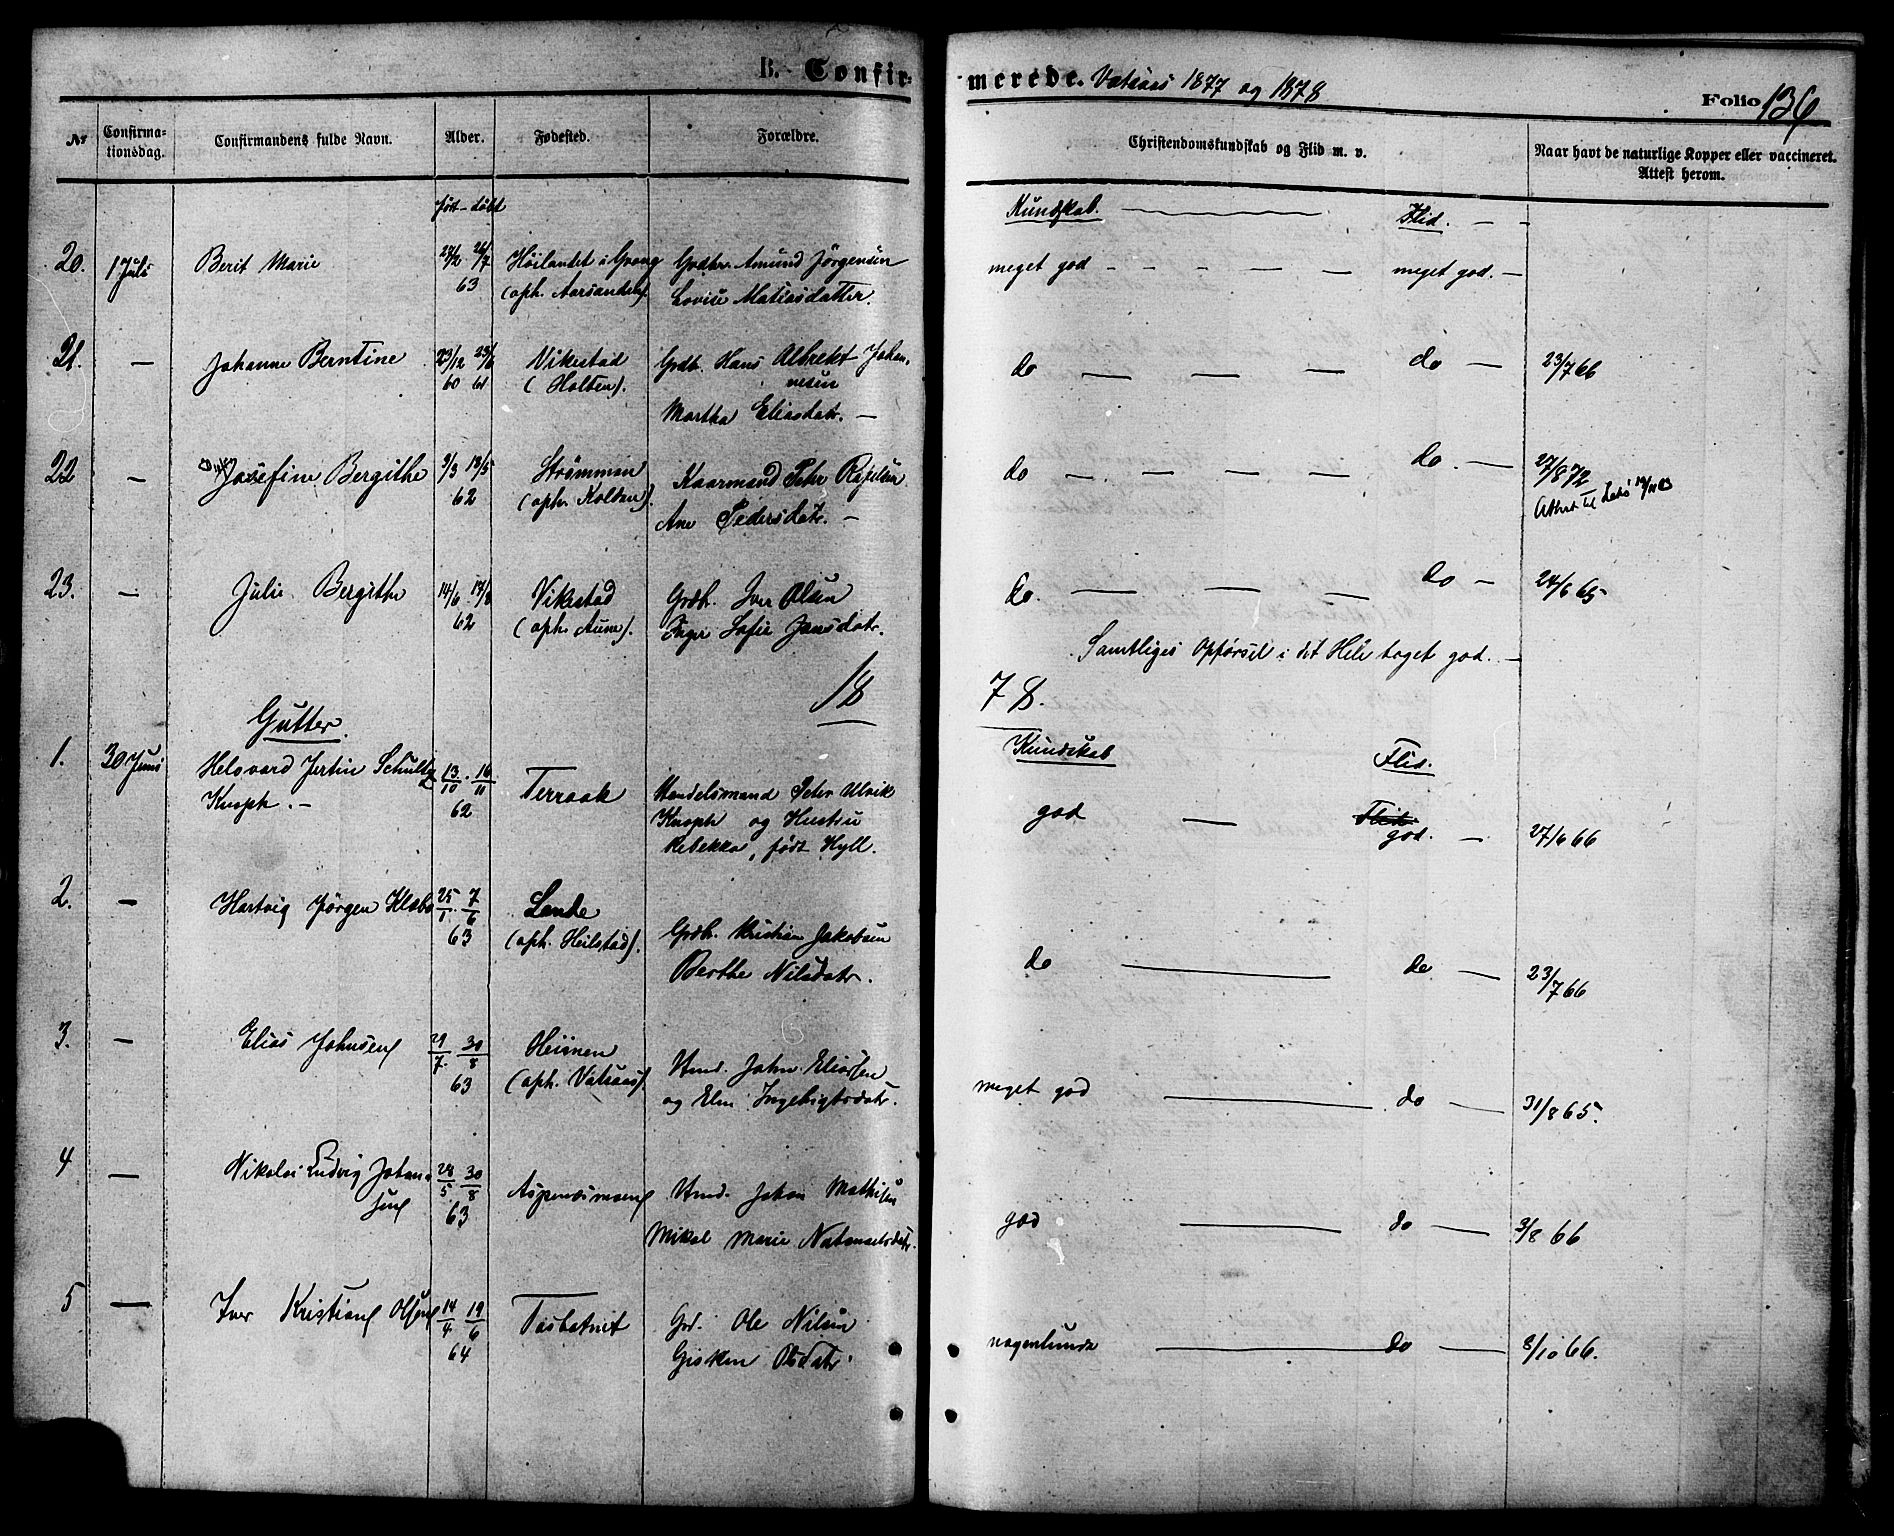 B. Confirmerede. Vatsaas 1877 og 1878
Folio 136
No
Confirmationsdag.
Confirmandens fulde Navn.
Alder.
Fødested.
Forældre.
Christendomskundskab og Flid m. v.
Naar havt de naturlige Kopper eller vaccineret. Attest herom.
født - døbt
Kundskab. Flid. —
20. 1 Juli Berit Marie 27/2 26/7 63 Høilandet i Grong (oph. Aarsanden) Grdbr. Amund Jörgensen
Lovise Matiasdatter.
meget god - - - — — meget god. —
21. — Johanne Berntine 23/12 23/6 60 61 Vikestad (Holten). Grdb. Hans Albrekt Johannesen
Martha Eliasdatr. —
do — — — — do — 23/7 66
22 — Josefine Bergithe 3/3 13/5 62 Strømmen (oph. Kolden). Kaarmand Peter
Ane Pedersdatr. —
do — — — — do. — 27/8 72
Attest til
23. — Julie Bergithe 14/6 17/8 62 Vikestad (oph. Aune). Grdb. Iver Olsen
Inger Sofie Jonsdatr.
do. — — — — do — 24/6 65
Samtliges Opførsel i det Hele taget god. —
18
78.
Gutter.
Kundskab Flid.
1. 30 Juni Helsvard Jertin Schultz
Knoph. — 13/10 16/11 62 Terraak Handelsmand Peter Ulvik
Knoph og Hustru
Rebekka, født Hyll.
god — Flid.
god. — 27/6 66
2. — Hartvig Jørgen Klæbo 25/1 7/6 63 Lande (oph. Heilstad). Grdb. Kristian Jakobsen
Berthe Nilsdatr.
do — do — 23/7 66
3. — Elias Johnsen 29/7 30/8 63 (oph. Vatsaas) Hmd. John Eliassen
og Elen Ingebrigtsdatr.
meget god — do — 31/8 65.
4 — Nikolai Ludvig Johansen 28/5 30/8 63 Aspenesmoen Hmd. Johan Mathisen
Mikal Marie Natanaelsdatr.
god — do — 3/8 66
5 — Iver Kristian Olsen 14/4 19/6 64 Tosbotnet Grd. Ole Nilsen
Gisken Olsdatr.
nogenlunde — do — 8/10 66.